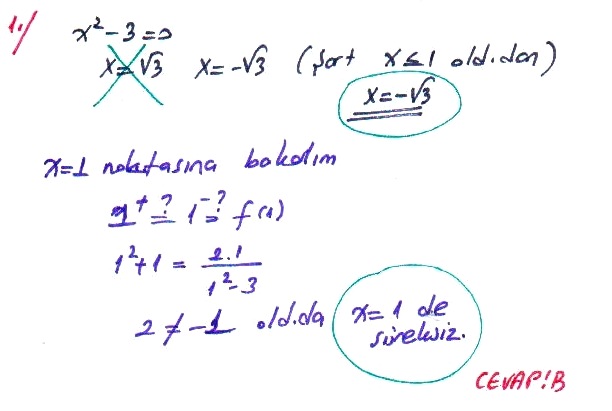 1.)
x² - 3 = 0
x = √3 x = -√3 (Şart x ≤ 1 old.dan)
x = -√3
x=1 noktasına bakalım
1⁺ ≟ 1⁻ ≟ f(1)
1² + 1 = 2.1 / 1² - 3
2 ≠ -1 old.da
x = 1 de
süreksiz.
CEVAP!B